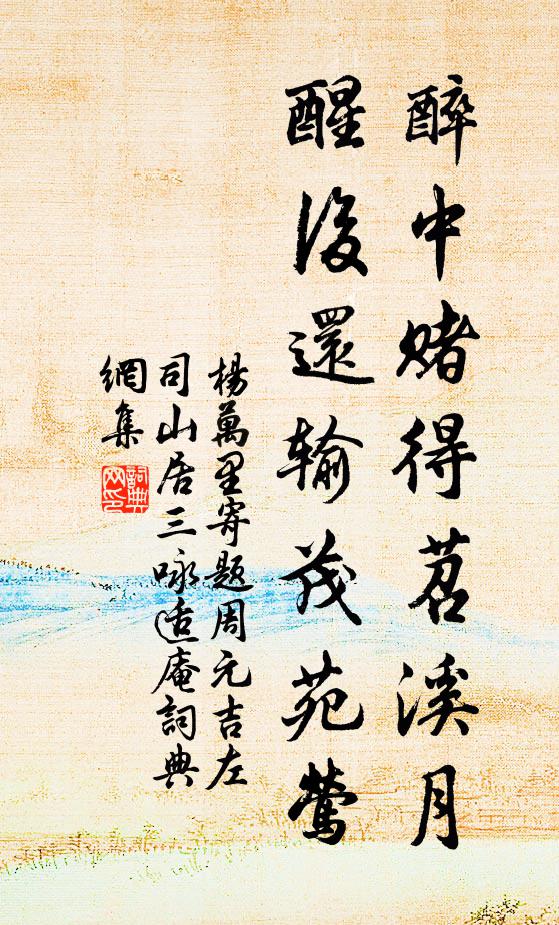 醉中賭得苕溪月
醒後還輸茂苑鶯
楊萬里寄題周元吉左
司山居三咏遁庵詞典
網集
詞典網印